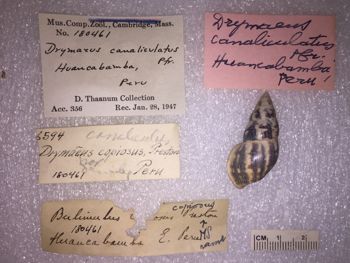 Mus. Comp. Zool., Cambridge, Mass.
No. 180461
Drymaeus canaliculatus
Pfr.
Huancabamba,
Peru
D. Thaanum Collection
Acc. 356 Rec. Jan. 28, 1947
Drymaeus
canaliculatus
Pfr.
Huancabamba
Peru
5594
Drymaeus copiosus, Preston
180461 Peru
copiosus
Bulimulus Preston
180461
Huancabamba E. Peru
CM 1 2